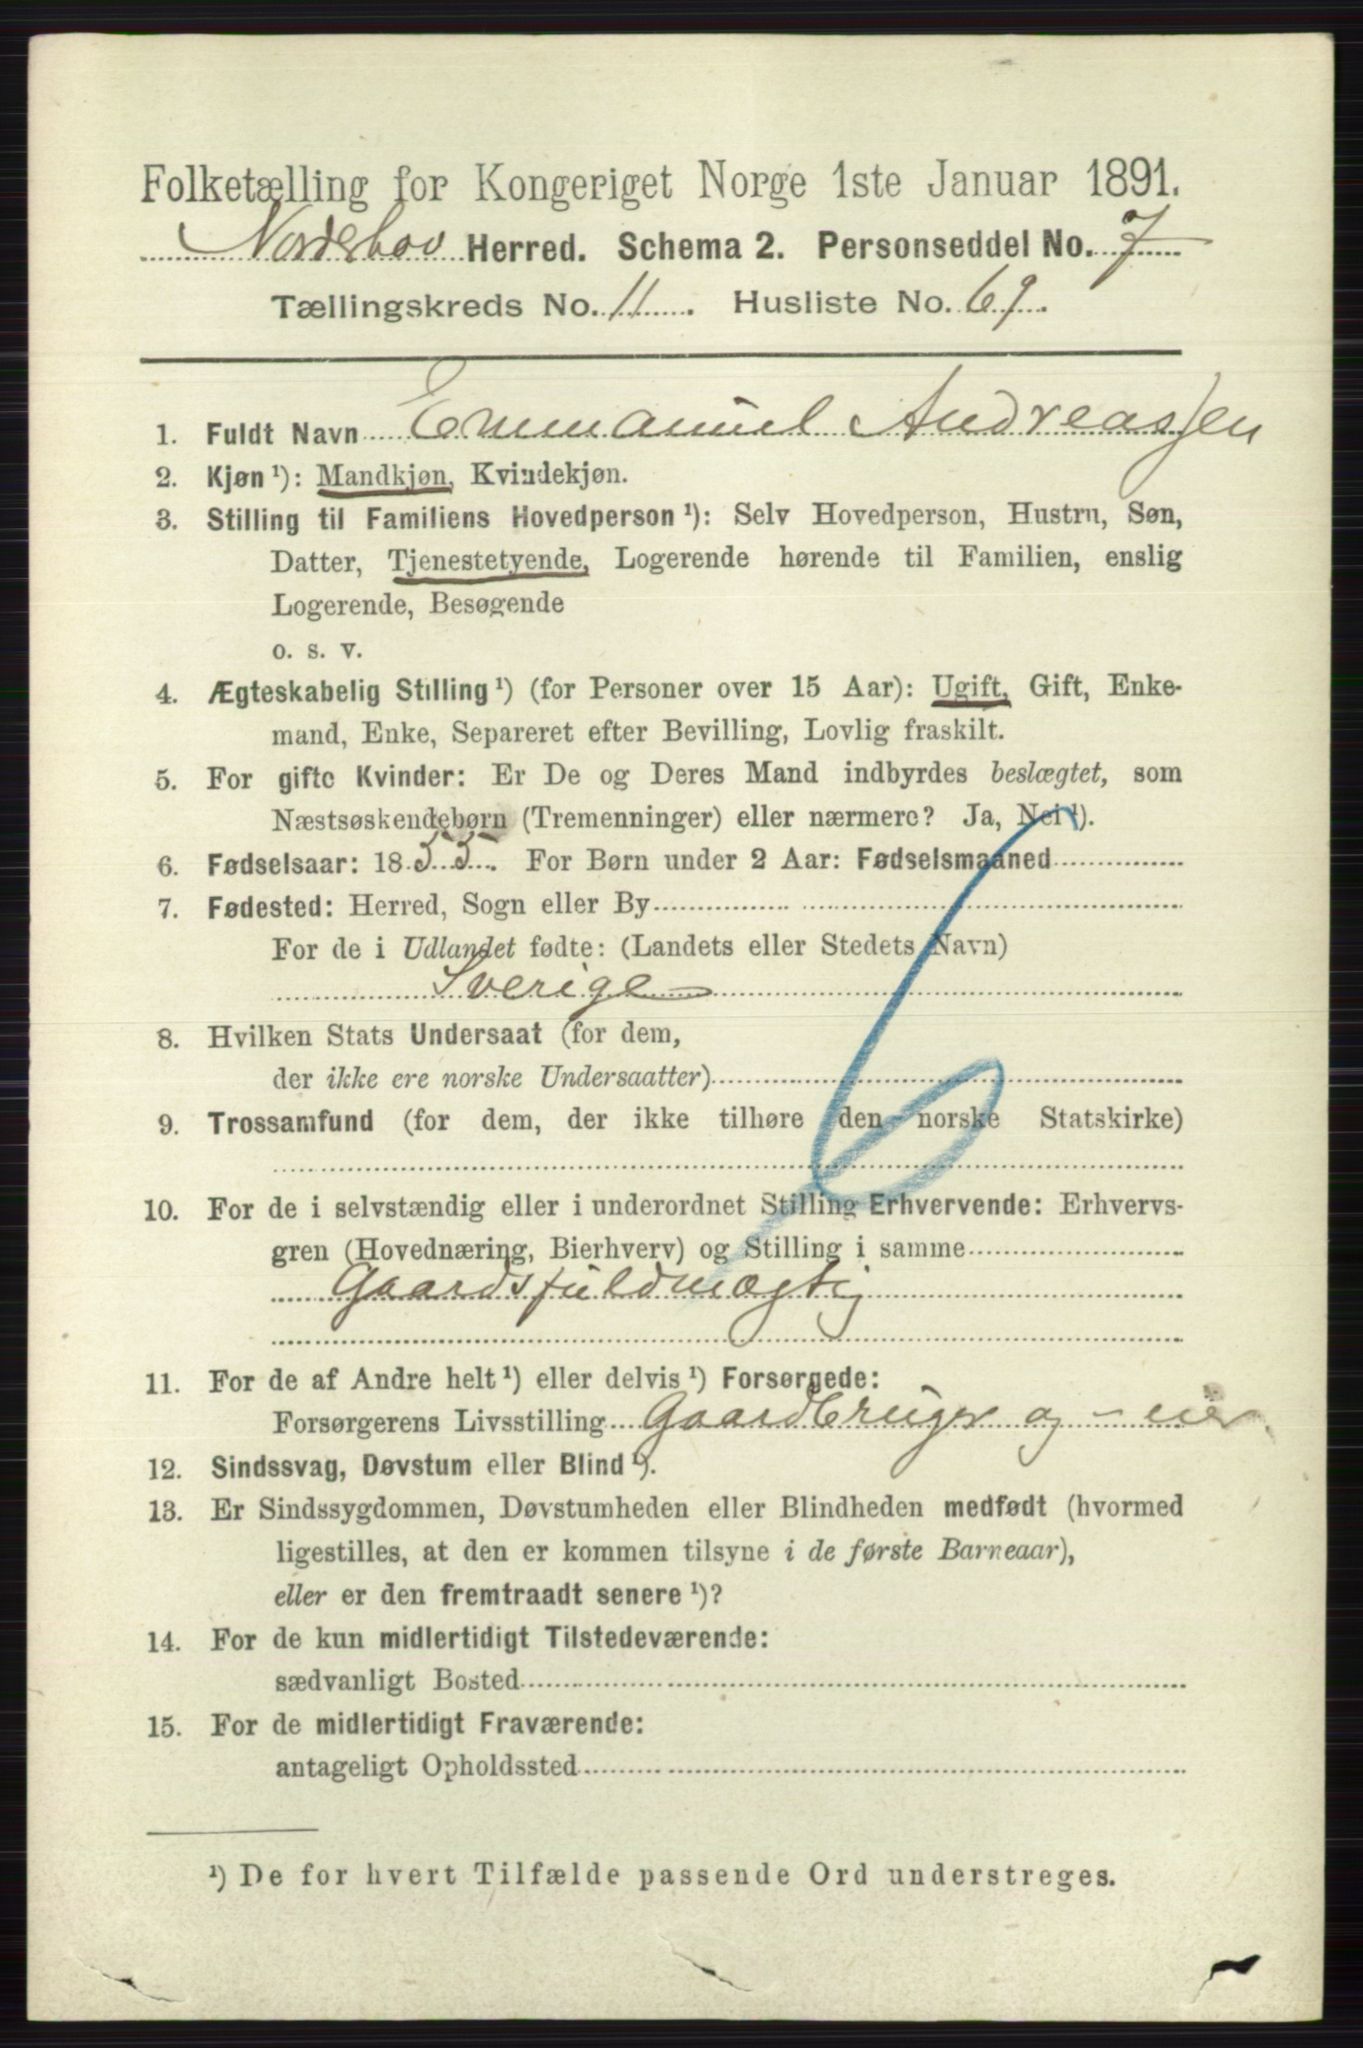 Folketælling for Kongeriget Norge 1ste Januar 1891.
Nordehov Herred. Schema 2. Personseddel No. 7
Tællingskreds No. 11. Husliste No. 69.
1. Fuldt Navn Emmanuel Andreassen
2. Kjøn ¹): Mandkjøn, Kvindekjøn.
3. Stilling til Familiens Hovedperson ¹): Selv Hovedperson, Hustru, Søn,
Datter, Tjenestetyende, Logerende hørende til Familien, enslig
Logerende, Besøgende
o. s. v.
4. Ægteskabelig Stilling ¹) (for Personer over 15 Aar): Ugift, Gift, Enke-
mand, Enke, Separeret efter Bevilling, Lovlig fraskilt.
5. For gifte Kvinder: Er De og Deres Mand indbyrdes beslægtet, som
Næstsøskendebørn (Tremenninger) eller nærmere? Ja, Nei ¹).
6. Fødselsaar: 1855. For Børn under 2 Aar: Fødselsmaaned
7. Fødested: Herred, Sogn eller By
For de i Udlandet fødte: (Landets eller Stedets Navn)
Sverige
8. Hvilken Stats Undersaat (for dem,
der ikke ere norske Undersaatter)
9. Trossamfund (for dem, der ikke tilhøre den norske Statskirke)
10. For de i selvstændig eller i underordnet Stilling Erhvervende: Erhvervs-
gren (Hovednæring, Bierhverv) og Stilling i samme
Gaardsfuldmægtig
11. For de af Andre helt ¹) eller delvis ¹) Forsørgede:
Forsørgerens Livsstilling Gaardbruger og - eier
12. Sindssvag, Døvstum eller Blind ¹).
13. Er Sindssygdommen, Døvstumheden eller Blindheden medfødt (hvormed
ligestilles, at den er kommen tilsyne i de første Barneaar),
eller er den fremtraadt senere ¹)?
14. For de kun midlertidigt Tilstedeværende:
sædvanligt Bosted
15. For de midlertidigt Fraværende:
antageligt Opholdssted
¹) De for hvert Tilfælde passende Ord understreges.